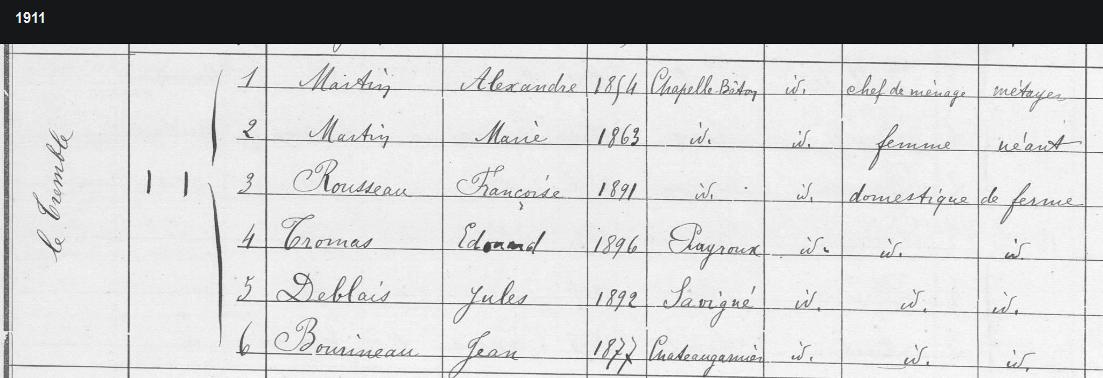 1911
le Tremble
1 1
1 Martin Alexandre 1854 Chapelle-Bâton id. chef de ménage métayer
2 Martin Marie 1863 id. id. femme néant
3 Rousseau Françoise 1891 id. id. domestique de ferme
4 Tromas Edouard 1896 Payroux id. id. id.
5 Deblais Jules 1892 Savigné id. id. id.
6 Bourineau Jean 1877 Chateaugarnier id. id. id.